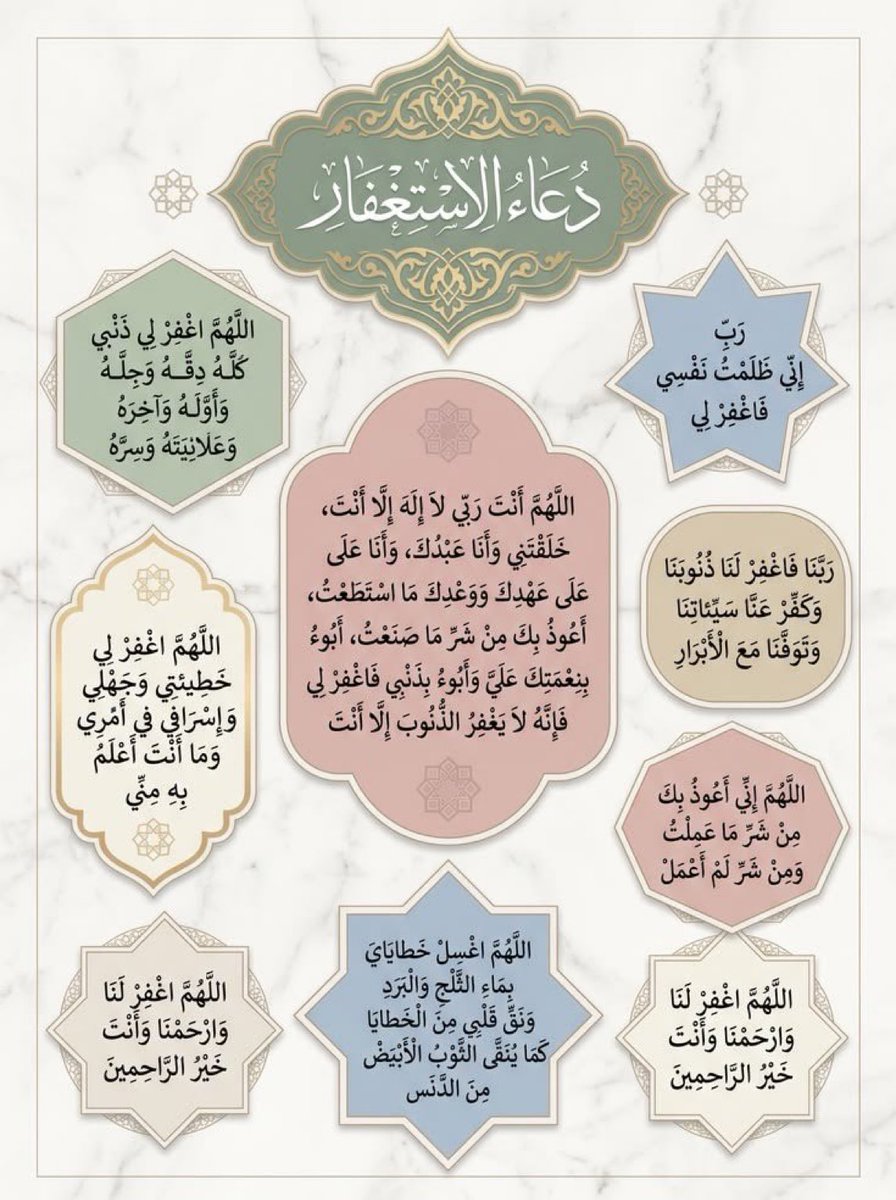 دُعَاءُ الِاسْتِغْفَارِ
رَبِّ
إِنِّي ظَلَمْتُ نَفْسِي
فَاغْفِرْ لِي
اللَّهُمَّ اغْفِرْ لِي ذَنْبي
كَلَّهُ دِقَّهُ وَجِلَّهُ
وَأَوَّلَهُ وَآخِرَهُ
وَعَلَانِيَتَهُ وَسِرَّهُ
اللَّهُمَّ أَنْتَ رَبِّي لاَ إِلَهَ إِلَّا أَنْتَ،
خَلَقْتَنِي وَأَنَا عَبْدُكَ، وَأَنَا عَلَى
عَلَى عَهْدِكَ وَوَعْدِكَ مَا اسْتَطَعْتُ،
أَعُوذُ بِكَ مِنْ شَرِّ مَا صَنَعْتُ، أَبُوءُ
بِنِعْمَتِكَ عَلَيَّ وَأَبُوءُ بِذَنْبِي فَاغْفِرْ لِي
فَإِنَّهُ لاَ يَغْفِرُ الذُّنُوبَ إِلَّا أَنْتَ
رَبَّنَا فَاغْفِرْ لَنَا ذُنُوبَنَا
وَكَفِّرْ عَنَّا سَيِّئاتِنَا
وَتَوَفَّنَا مَعَ الْأَبْرَارِ
اللَّهُمَّ اغْفِرْ لِي
خَطِيئتِي وَجَهْلِي
وَإِسْرَافِي في أَمْرِي
وَمَا أَنْتَ أَعْلَمُ
بِهِ مِنِّي
اللَّهُمَّ إِنِّي أَعُوذُ بِكَ
مِنْ شَرِّ مَا عَمِلْتُ
وَمِنْ شَرِّ لَمْ أَعْمَلْ
اللَّهُمَّ اغْفِرْ لَنَا
وَارْحَمْنَا وَأَنْتَ
خَيْرُ الرَّاحِمِينَ
اللَّهُمَّ اغْسِلْ خَطايَايَ
بِمَاءِ الثَّلْجِ وَالْبَرَدِ
وَنَقِّ قَلْبِي مِنَ الْخَطايَا
كَمَا يُنَقَّى الثَّوْبُ الْأَبْيَضْ
مِنَ الدَّنَس
اللَّهُمَّ اغْفِرْ لَنَا
وَارْحَمْنَا وَأَنْتَ
خَيْرُ الرَّاحِمِينَ